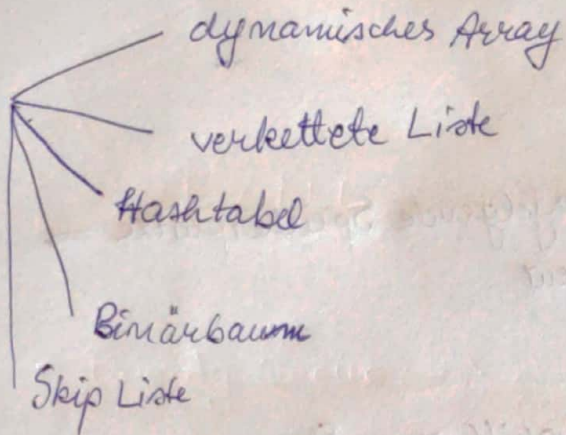 dynamisches Array
verkettete Liste
Hashtabel
Binärbaum
Skip Liste